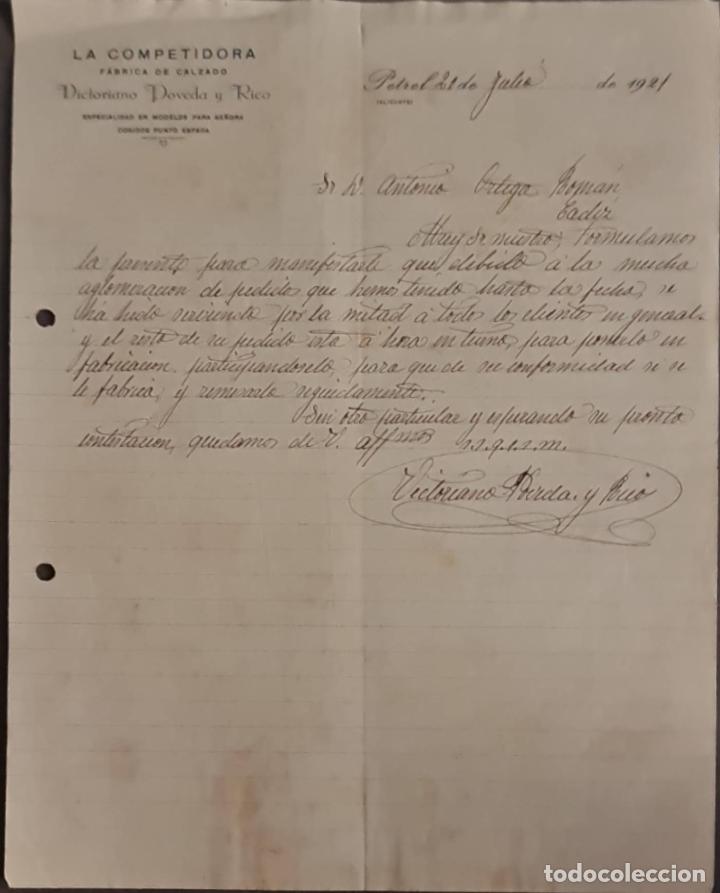 LA COMPETIDORA
FÁBRICA DE CALZADO
Victoriano Poveda y Rico
ESPECIALIDAD EN MODELOS PARA SEÑORA
COSIDOS PUNTO ESPAÑA
Petrel 21 de Julio de 1921
(ALICANTE)
Sr D. Antonio Ortega Román
Cadiz
Muy Sr nuestro, Formulamos
la presente para manifestarle que, debido á la mucha
aglomeracion de pedidos que hemos tenido hasta la fecha, se
ha hido sirviendo por la mitad á todos los clientes en general
y el resto de su pedido esta á hora en turno, para ponerlo en
fabricacion, participandoselo para que de su conformidad si se
le fabrica, y remesarle seguidamente.
Sin otro particular y esperando su pronta
contestacion, quedamos de V. affmos s.s.q.e.s.m.
Victoriano Poveda y Rico
todocoleccion